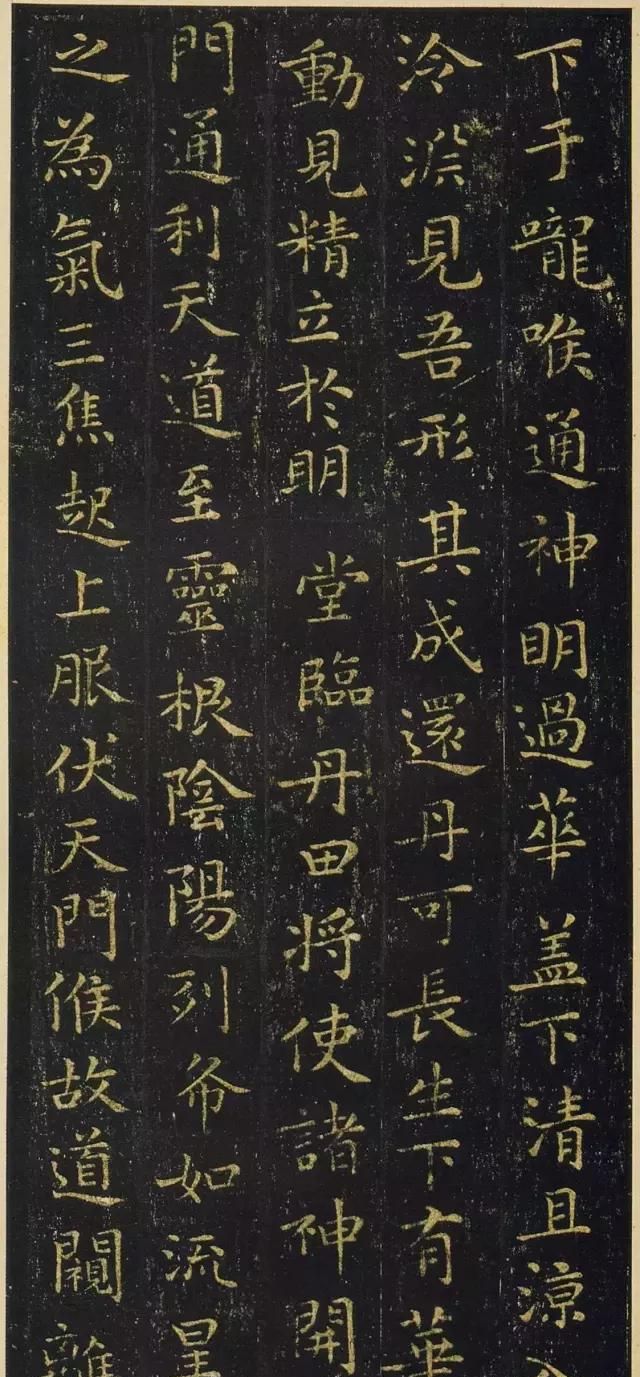 下于嚨喉通神明過華盖下清且涼入
泠淵見吾形其成還丹可長生下有華
動見精立於明堂臨丹田将使諸神開
門通利天道至靈根陰陽列布如流星
之為氣三焦起上服伏天門候故道闚離